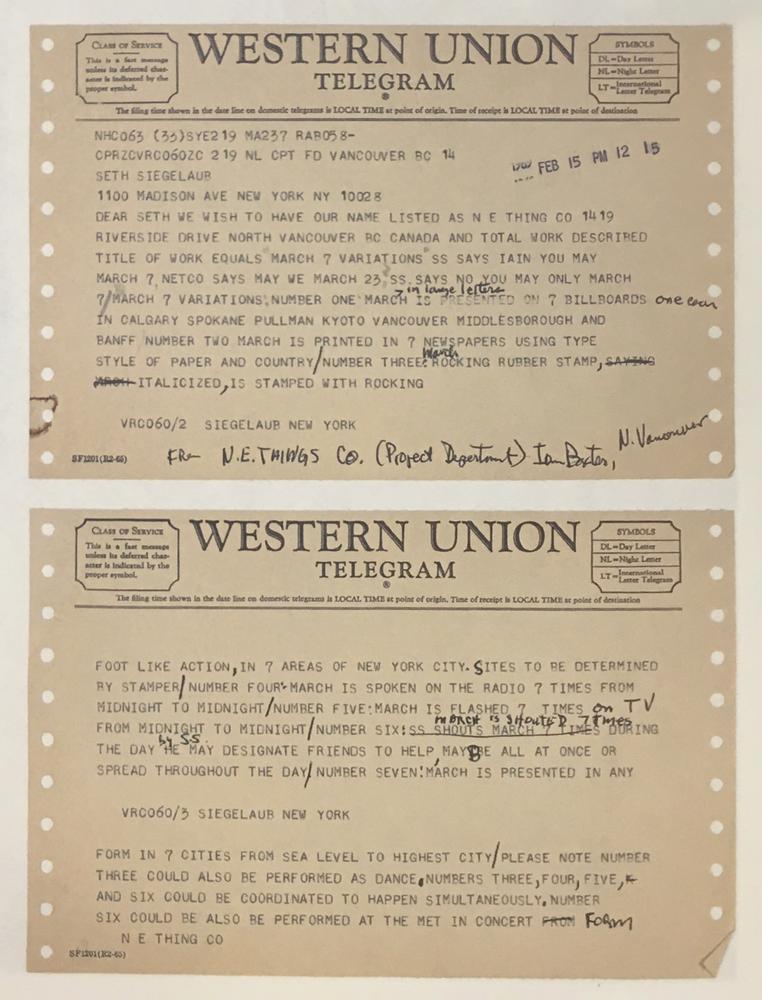 CLASS OF SERVICE
This is a fast message
unless its deferred char-
acter is indicated by the
proper symbol.
WESTERN UNION
TELEGRAM
®
SYMBOLS
DL=Day Letter
NL=Night Letter
LT=International Letter Telegram
The filing time shown in the date line on domestic telegrams is LOCAL TIME at point of origin. Time of receipt is LOCAL TIME at point of destination
NHC063 (33)SYE219 MA237 RAB058-
CPRZCVRC060ZC 219 NL CPT FD VANCOUVER BC 14
FEB 15 PM 12 15
SETH SIEGELAUB
1100 MADISON AVE NEW YORK NY 10028
DEAR SETH WE WISH TO HAVE OUR NAME LISTED AS N E THING CO 1419
RIVERSIDE DRIVE NORTH VANCOUVER BC CANADA AND TOTAL WORK DESCRIBED
TITLE OF WORK EQUALS MARCH 7 VARIATIONS SS SAYS IAIN YOU MAY
MARCH 7, NETCO SAYS MAY WE MARCH 23 SS SAYS NO YOU MAY ONLY MARCH
in large letters
7/MARCH 7 VARIATIONS NUMBER ONE MARCH IS PRESENTED ON 7 BILLBOARDS one each
IN CALGARY SPOKANE PULLMAN KYOTO VANCOUVER MIDDLESBOROUGH AND
BANFF NUMBER TWO MARCH IS PRINTED IN 7 NEWSPAPERS USING TYPE
March
STYLE OF PAPER AND COUNTRY/NUMBER THREE: ROCKING RUBBER STAMP, SAYING
MRCH ITALICIZED, IS STAMPED WITH ROCKING
VRC060/2 SIEGELAUB NEW YORK
SF1201(R2-65)
N.E. THINGS Co. (Project Department) Iain Baxter, N. Vancouver
CLASS OF SERVICE
This is a fast message
unless its deferred char-
acter is indicated by the
proper symbol.
WESTERN UNION
TELEGRAM
®
SYMBOLS
DL=Day Letter
NL=Night Letter
LT=International Letter Telegram
The filing time shown in the date line on domestic telegrams is LOCAL TIME at point of origin. Time of receipt is LOCAL TIME at point of destination
FOOT LIKE ACTION, IN 7 AREAS OF NEW YORK CITY. SITES TO BE DETERMINED
BY STAMPER/NUMBER FOUR: MARCH IS SPOKEN ON THE RADIO 7 TIMES FROM
MIDNIGHT TO MIDNIGHT/NUMBER FIVE: MARCH IS FLASHED 7 TIMES on TV
MARCH IS SHOUTED 7 Times
FROM MIDNIGHT TO MIDNIGHT/NUMBER SIX: SS SHOUTS MARCH 7 TIMES DURING
by SS.
THE DAY HE MAY DESIGNATE FRIENDS TO HELP, MAY BE ALL AT ONCE OR
SPREAD THROUGHOUT THE DAY/NUMBER SEVEN: MARCH IS PRESENTED IN ANY
VRC060/3 SIEGELAUB NEW YORK
FORM IN 7 CITIES FROM SEA LEVEL TO HIGHEST CITY/PLEASE NOTE NUMBER
THREE COULD ALSO BE PERFORMED AS DANCE, NUMBERS THREE, FOUR, FIVE,
AND SIX COULD BE COORDINATED TO HAPPEN SIMULTANEOUSLY. NUMBER
SIX COULD BE ALSO BE PERFORMED AT THE MET IN CONCERT FROM FORM
N E THING CO
SF1201(R2-65)